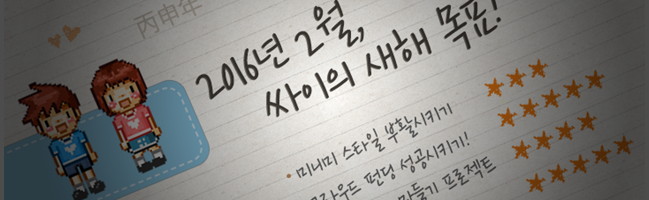 丙申年
2016년 2월,
싸이의 새해 목표!
• 미니미 스타일 부활시키기
크라우드 펀딩 성공시키기!
만들기 프로젝트